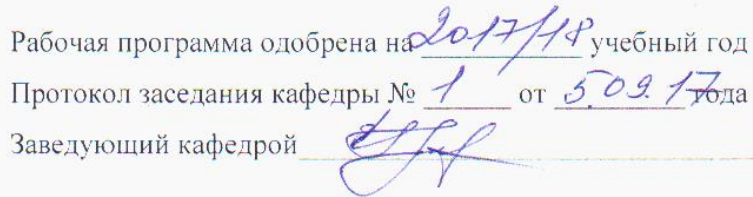 Рабочая программа одобрена на 2017/18 учебный год
Протокол заседания кафедры № 1 от 5.09.17 года
Заведующий кафедрой